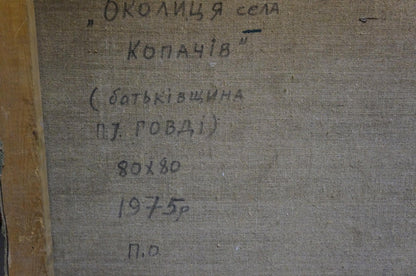 „Околиця села
Копачів"
(батьківщина
П.У. Говді)
80х80
1975р
п.о